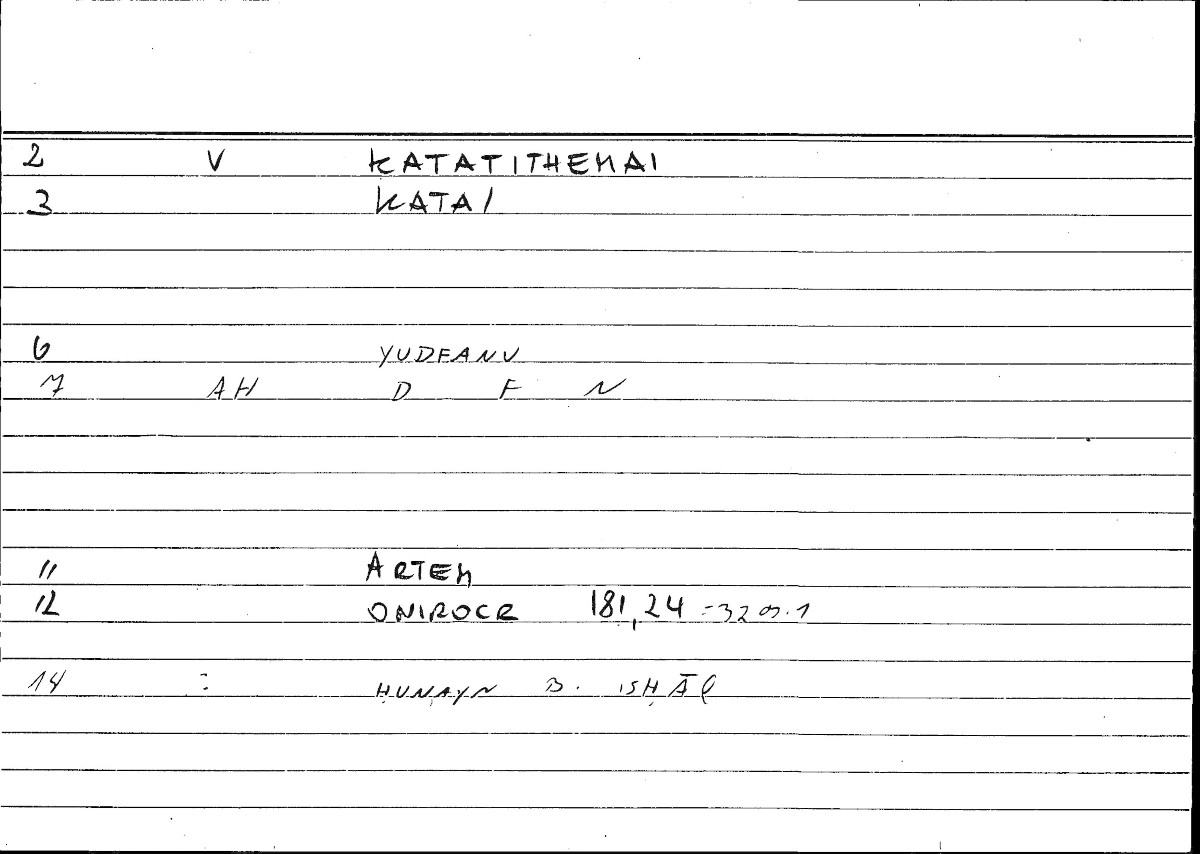 2 V KATATITHEMAI
3 KATAI
6 YUDFANU
7 AH D F N
11 ARTEM
12 ONIROCR 181,24 =320.1
14 : ḤUNAYN B. ISḤĀQ